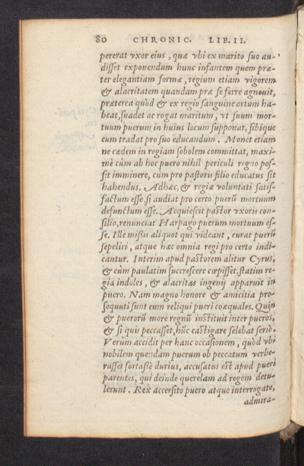 80 CHRONIC. LIB. II.
pererat vxor eius, quæ vbi ex marito suo au-
disset exponendum hunc infantem quem præ-
ter elegantiam formæ, regium etiam vigorem
& alacritatem quandam præ se ferre agnouit,
præterea quòd & ex regio sanguine ortum ha-
beat, suadet ac rogat maritum, vt suum mor-
tuum puerum in huius locum supponat, sibique
eum tradat pro suo educandum. Monet etiam
ne cædem in regiam sobolem committat, maxi-
mè cùm ab hoc puero nihil periculi regno pos-
sit imminere, cum pro pastoris filio educatus sit
habendus. Adhæc, & regiæ voluntati satis-
factum esse si audiat pro certo puerũ mortuum
defunctum esse. Acquiescit pastor vxoris con-
silio, renunciat Harpago puerum mortuum es-
se. Ille missis aliquot qui videant, curat puerũ
sepeliri, atque hæc omnia regi pro certo indi-
cantur. Interim apud pastorem alitur Cyrus,
& cùm paulatim succrescere cœpisset, statim re-
gia indoles, & alacritas ingenij apparuit in
puero. Nam magno honore & amicitia pro-
sequuti sunt eum reliqui pueri coæquales. Quin
& puerorũ more regnũ instituit inter pueros,
& si quis peccasset, hũc castigare solebat seriò.
Verum accidit per hanc occasionem, quòd vbi
nobilem quendam puerum ob peccatum verbe-
rasset fortasse durius, accusatus est apud pueri
parentes, qui deinde querelam ad regem detu-
lerunt. Rex accersito puero atque interrogato,
admira-